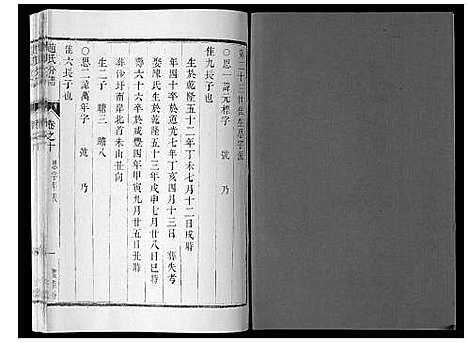 第二十三世住生恩字派
○恩一諱元標字 號 乃
佳九長子也
生於乾隆五十二年丁未七月十二日戌時
年四十卒於道光七年丁亥四月十三日 葬失考
娶陳氏生於乾隆五十三年戊申七月廿八日巳時
壽六十六卒於咸豐四年甲寅九月廿五日丑時
葬沙圩南岸北首未山丑向
生二子 聰三 聰八
○恩二諱萬年字 號 乃
佳六長子也
趙氏分譜
卷之十